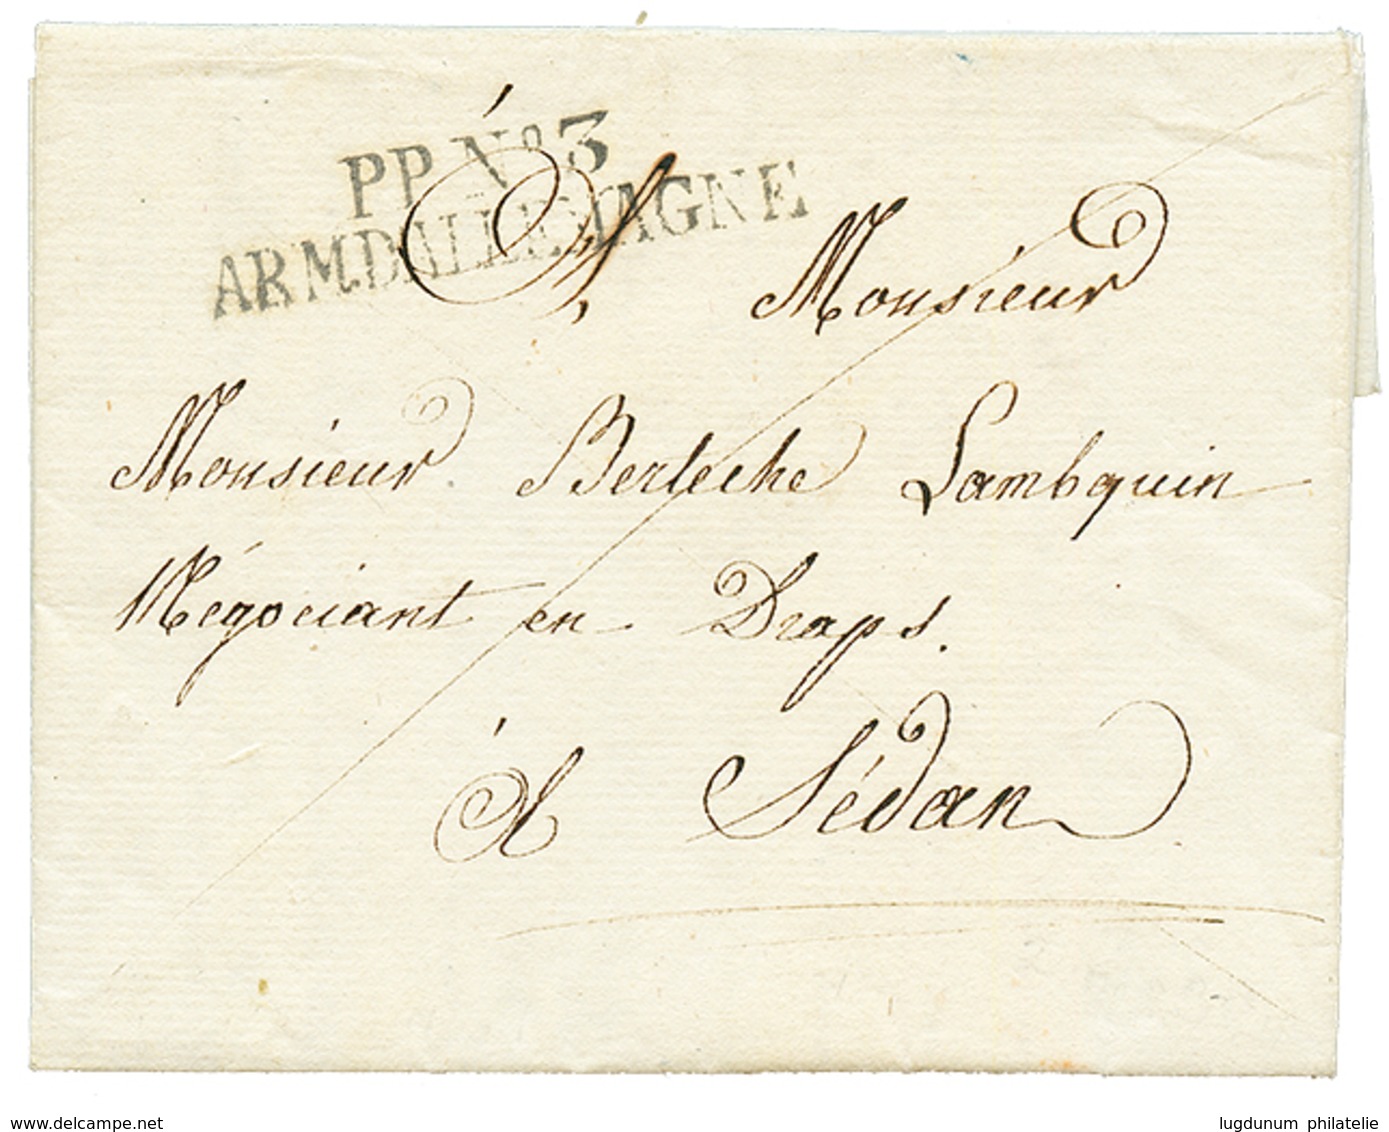 PP Nº 3
ARM.DALLEMAGNE
À Monsieur
Monsieur Berteche Lambquin
Négociant en Draps.
à Sédan
www.delcampe.net
lugdunum philatelie